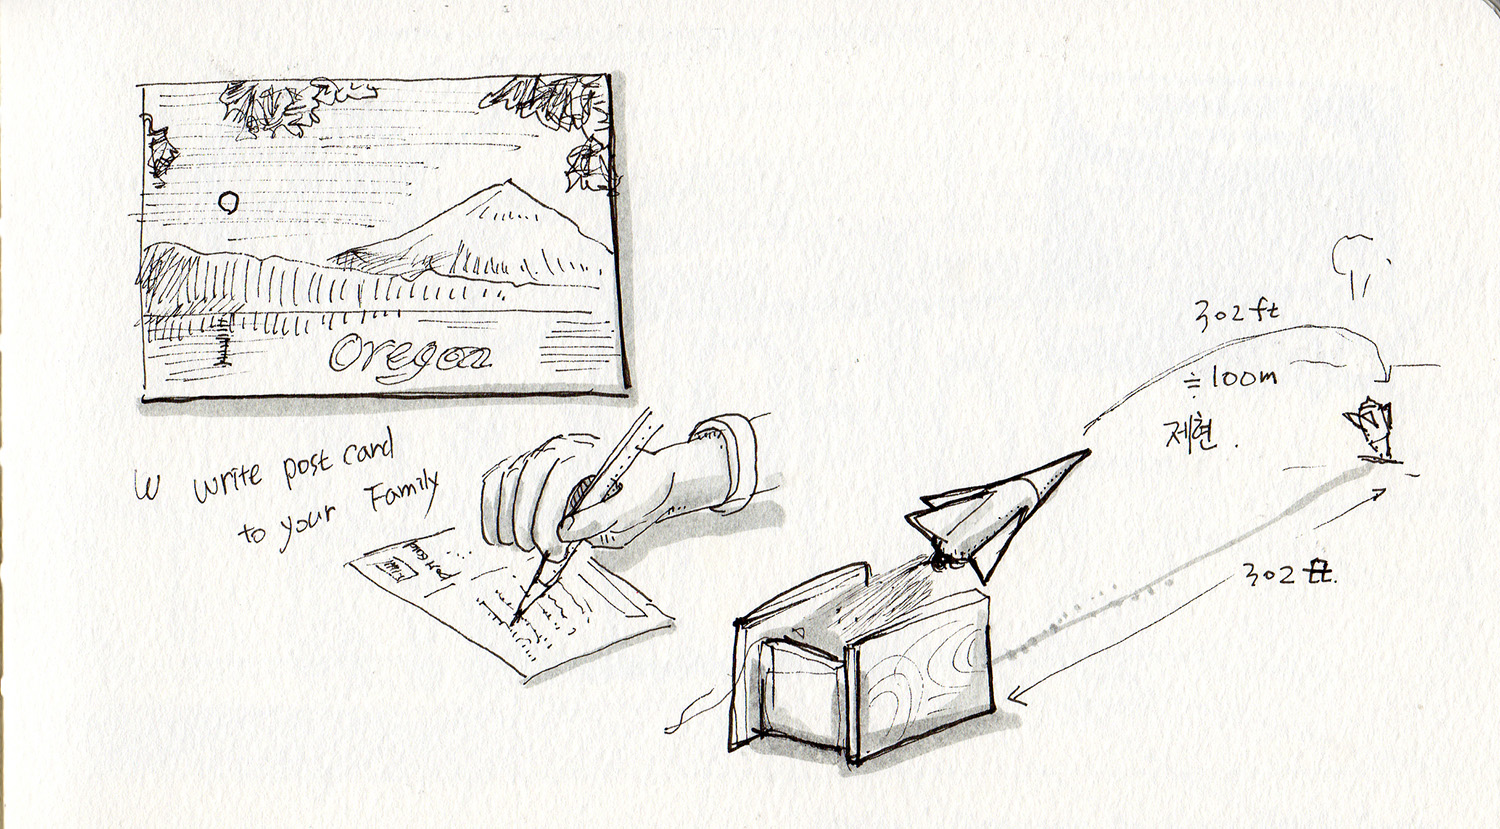 Oregon
W write post card
to your Family
post card
302ft
≒100m
제현.
302ft.